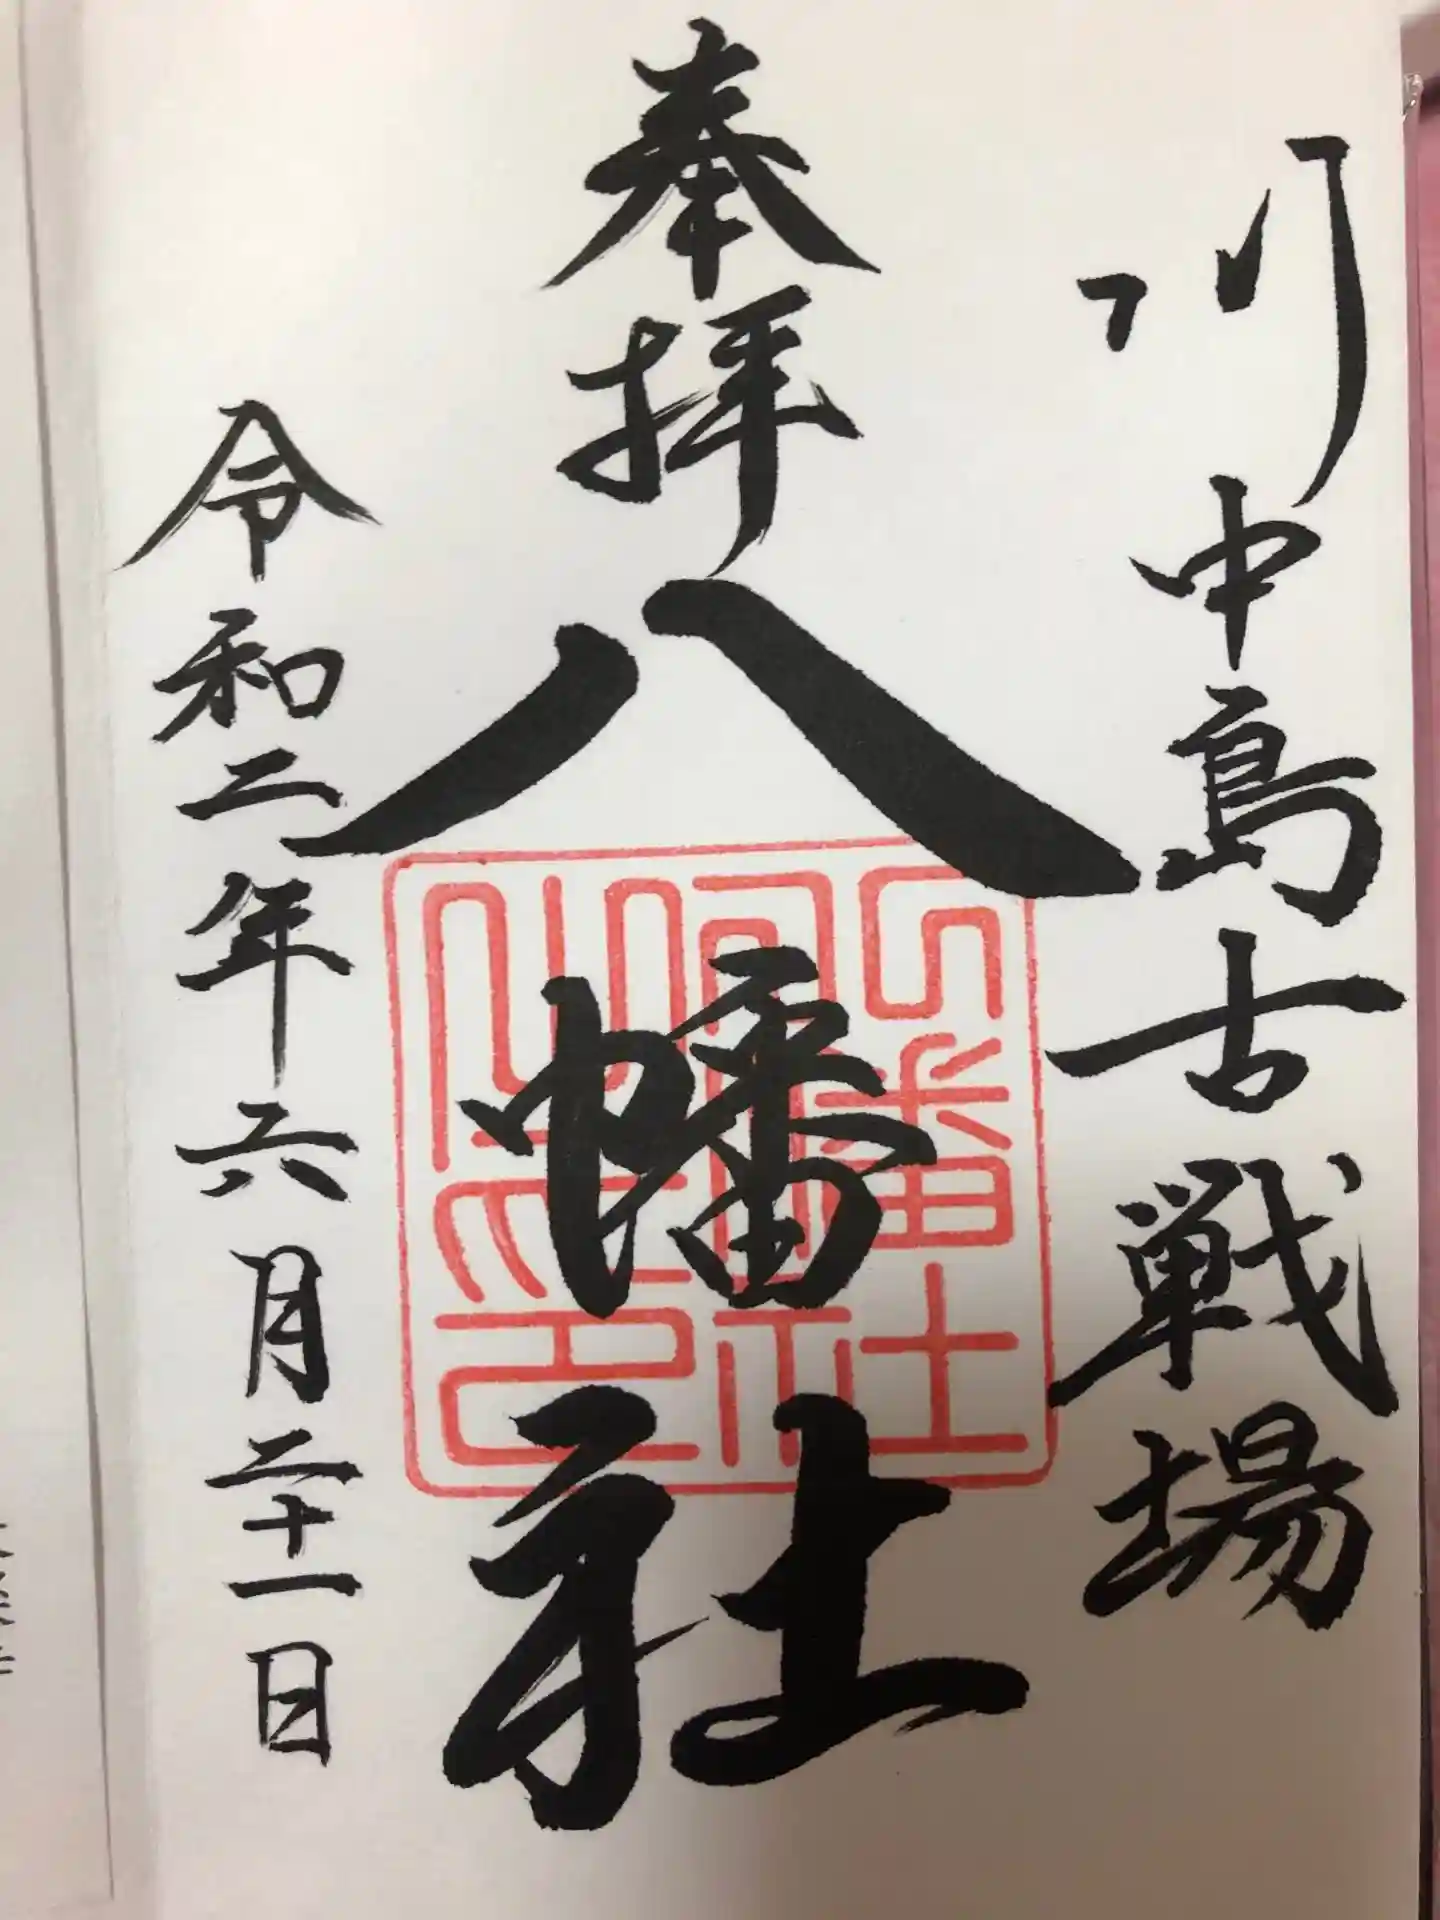 川中島古戦場
奉拝
八幡社
令和二年六月二十一日